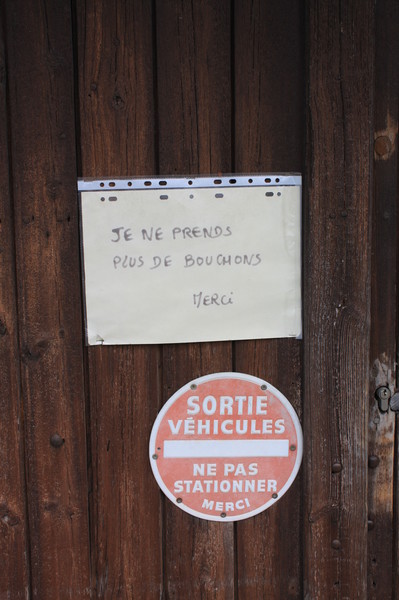 JE NE PRENDS
PLUS DE BOUCHONS
MERCi
SORTIE
VÉHICULES
NE PAS
STATIONNER
MERCI